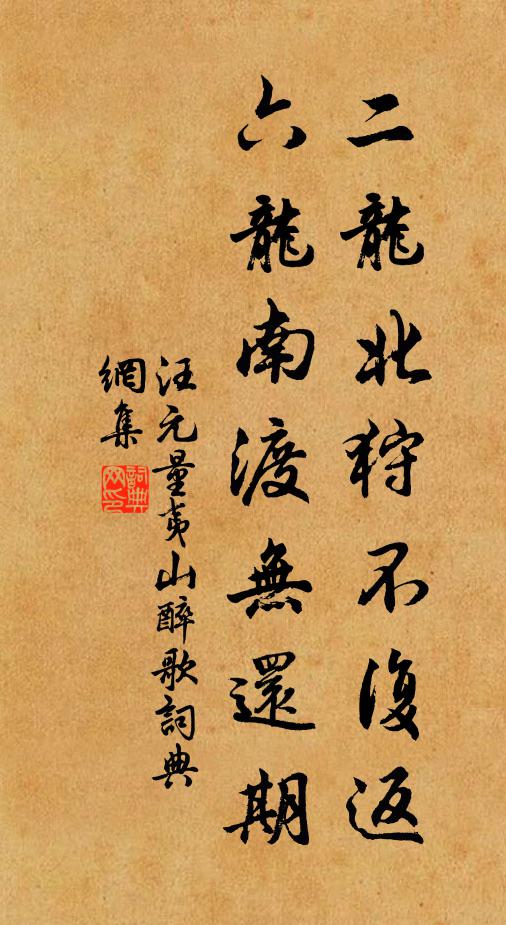 二龍北狩不復返
六龍南渡無還期
汪元量夷山醉歌詞典
網集
詞典
网印